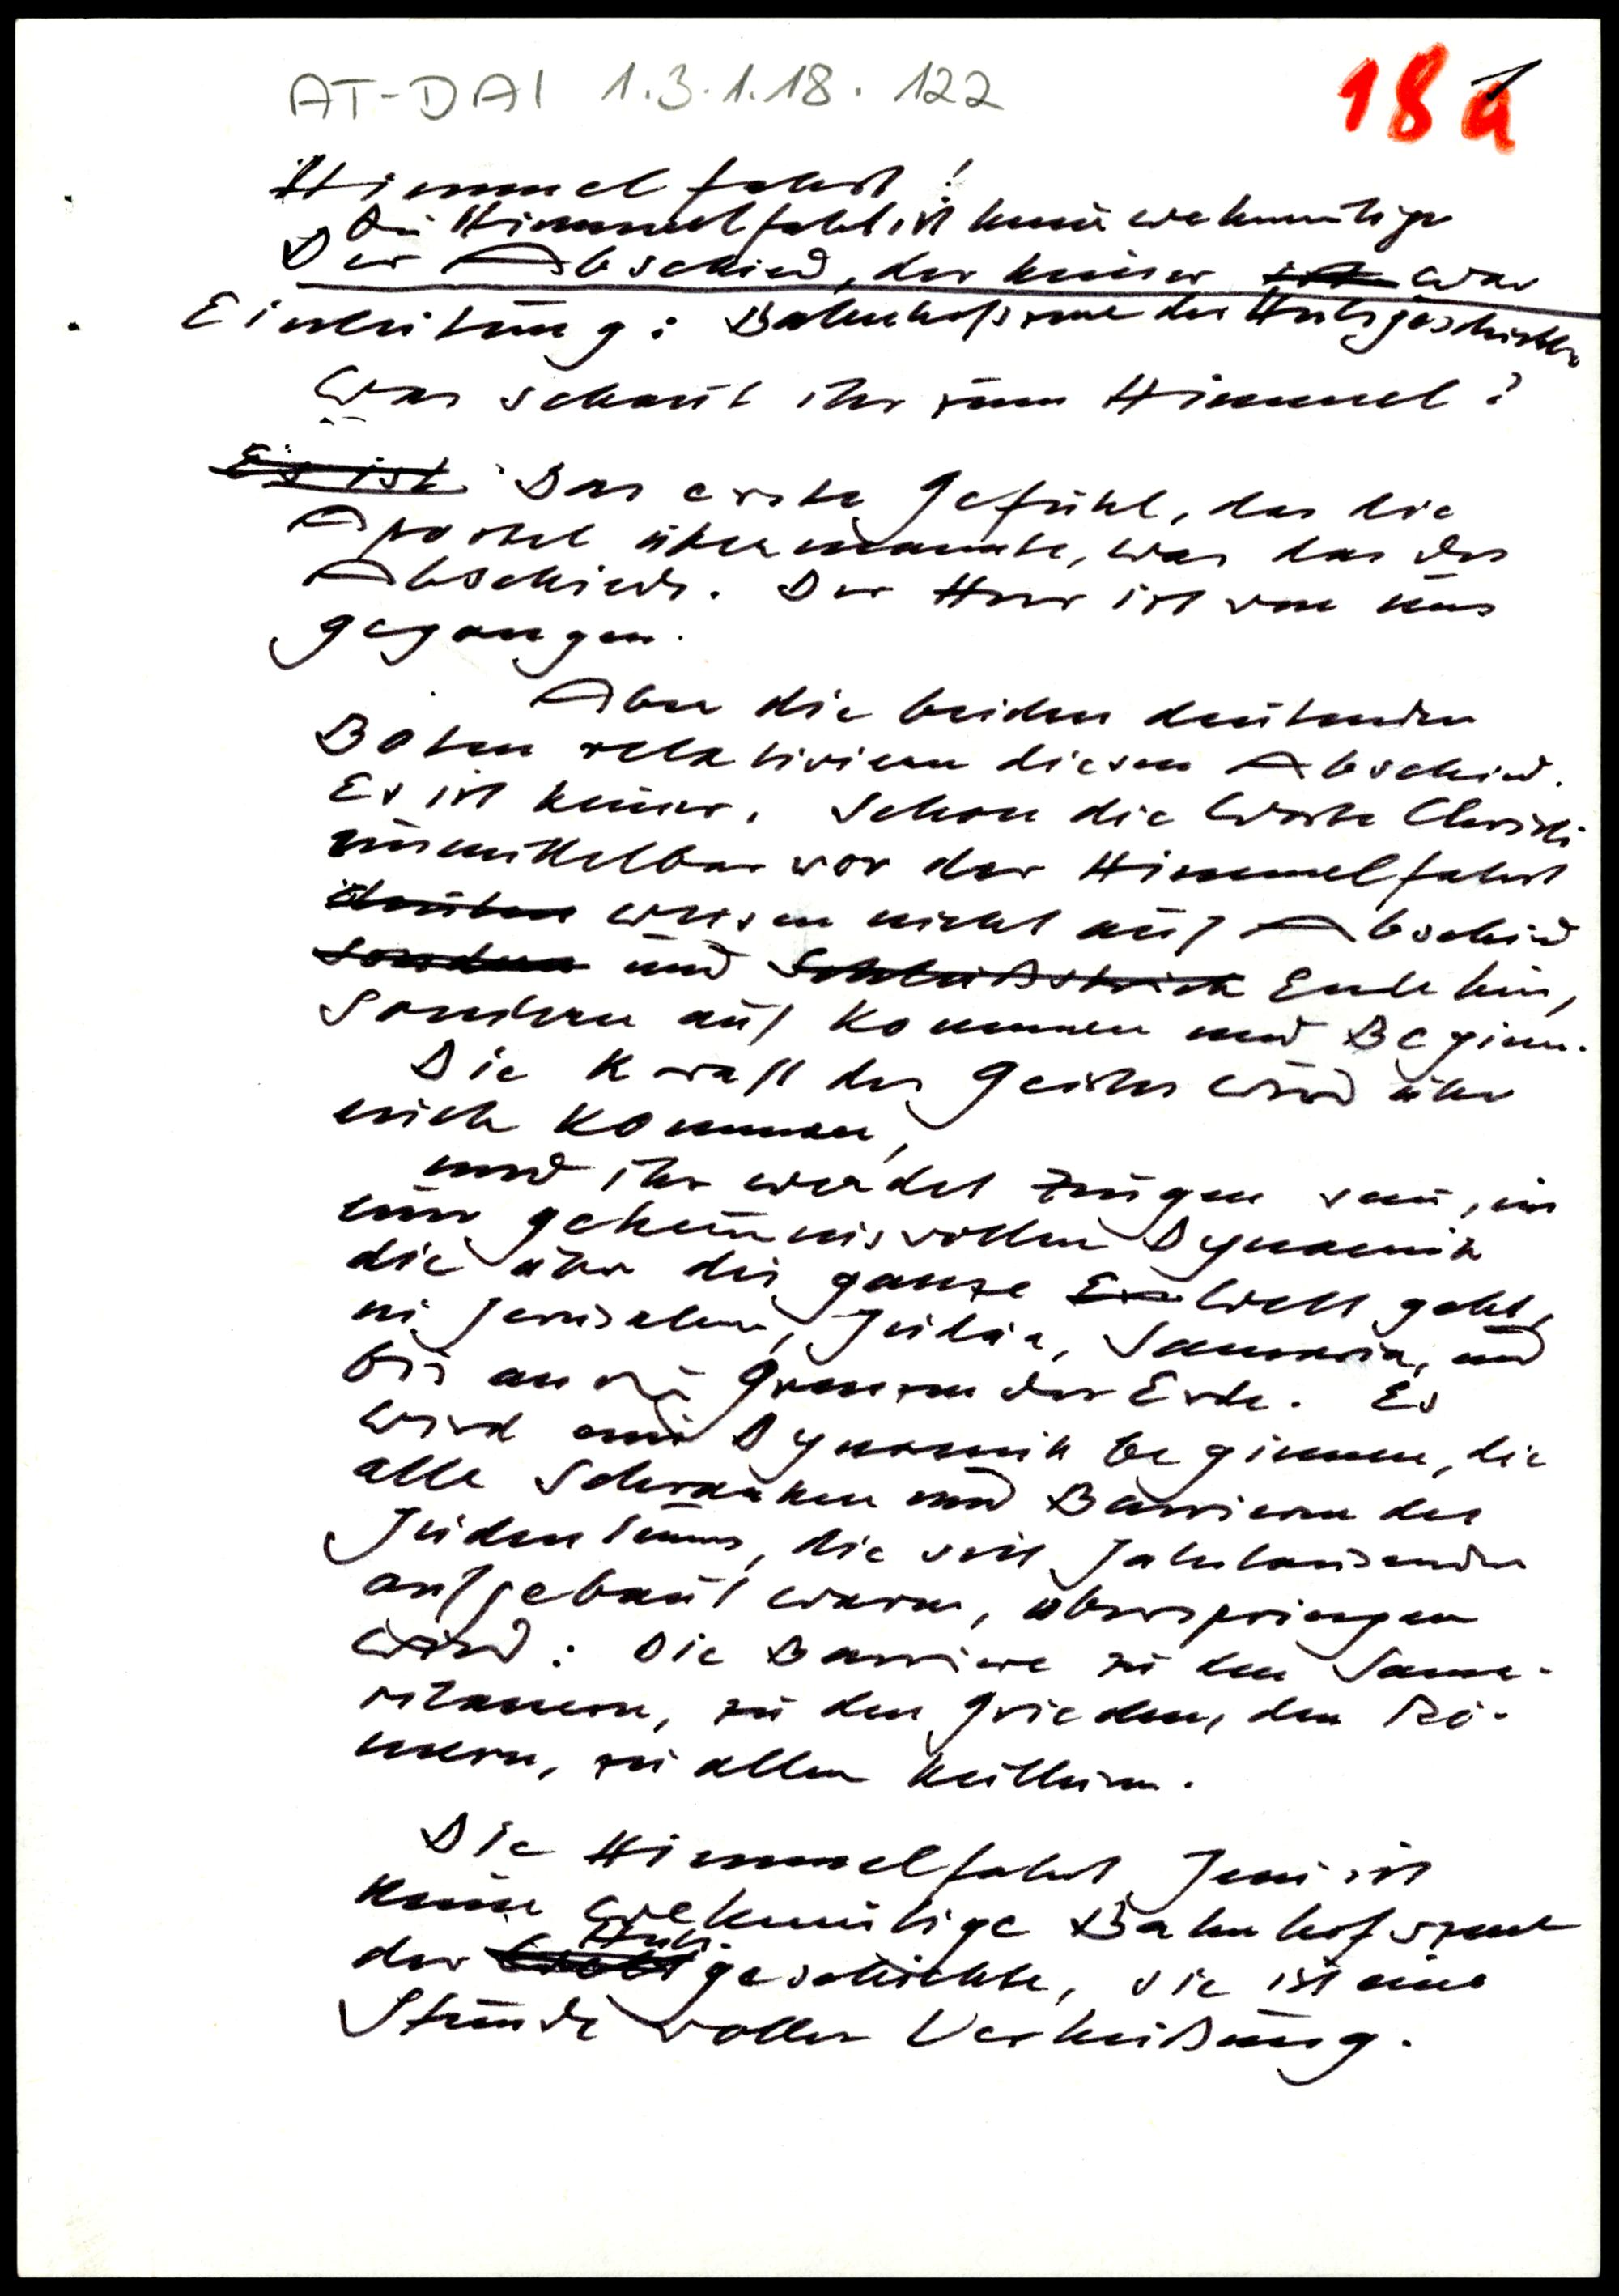 AT-DAI 1.3.1.18.122
18a 1
Himmelfahrt!
Die Himmelfahrt ist keine wehmütige
Der Abschied, der keiner ist war
Einleitung: Bahnhofszene der Heilsgeschichte
Was schaut ihr zum Himmel?
Es ist Das erste Gefühl, das die
Apostel übermannte, war das des
Abschieds. Der Herr ist von uns
gegangen.
Aber die beiden deutenden
Boten relativieren diesen Abschied.
Es ist keiner. Schon die Worte Christi
unmittelbar vor der Himmelfahrt
deuten weisen nicht auf Abschied
sondern und Schlußstrich Ende hin,
sondern auf Kommen und Beginn.
Die Kraft des Geistes wird über
euch kommen,
und ihr werdet Zeugen sein, in
einer geheimnisvollen Dynamik
die über die ganze Welt geht,
in Jerusalem, Judäa, Samaria, und
bis an die Grenzen der Erde. Es
wird eine Dynamik beginnen, die
alle Schranken und Barrieren des
Judentums, die seit Jahrtausenden
aufgebaut waren, überspringen
wird: Die Barriere zu den Sama-
ritanern, zu den Griechen, den Rö-
mern, zu allen Kulturen.
Die Himmelfahrt Jesu ist
keine wehmütige Bahnhofszene
der Heilsgeschichte, sie ist eine
Stunde voller Verheißung.